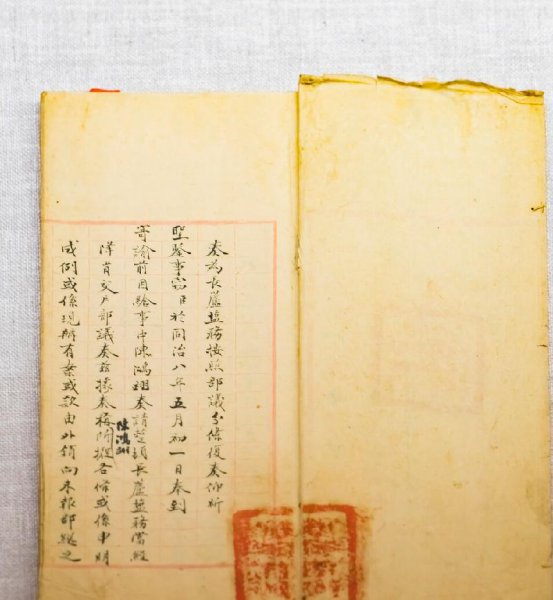 奏為長蘆鹽務按照部議分條復奏仰祈
聖鑒事竊臣於同治八年五月初一日奉到
寄諭前因給事中陳鴻翊奏請整頓長蘆鹽務當經
降旨交戶部議奏茲據奏稱陳鴻翊所擬各條或係申明
成例或係現辦有案或款由外銷向未報部總之